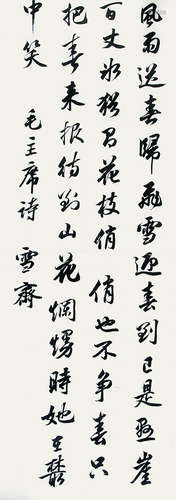 風雨送春歸飛雪迎春到已是懸崖
百丈冰猶有花枝俏俏也不争春只
把春来報待到山花爛熳時她在叢
中笑 毛主席詩 雪齋